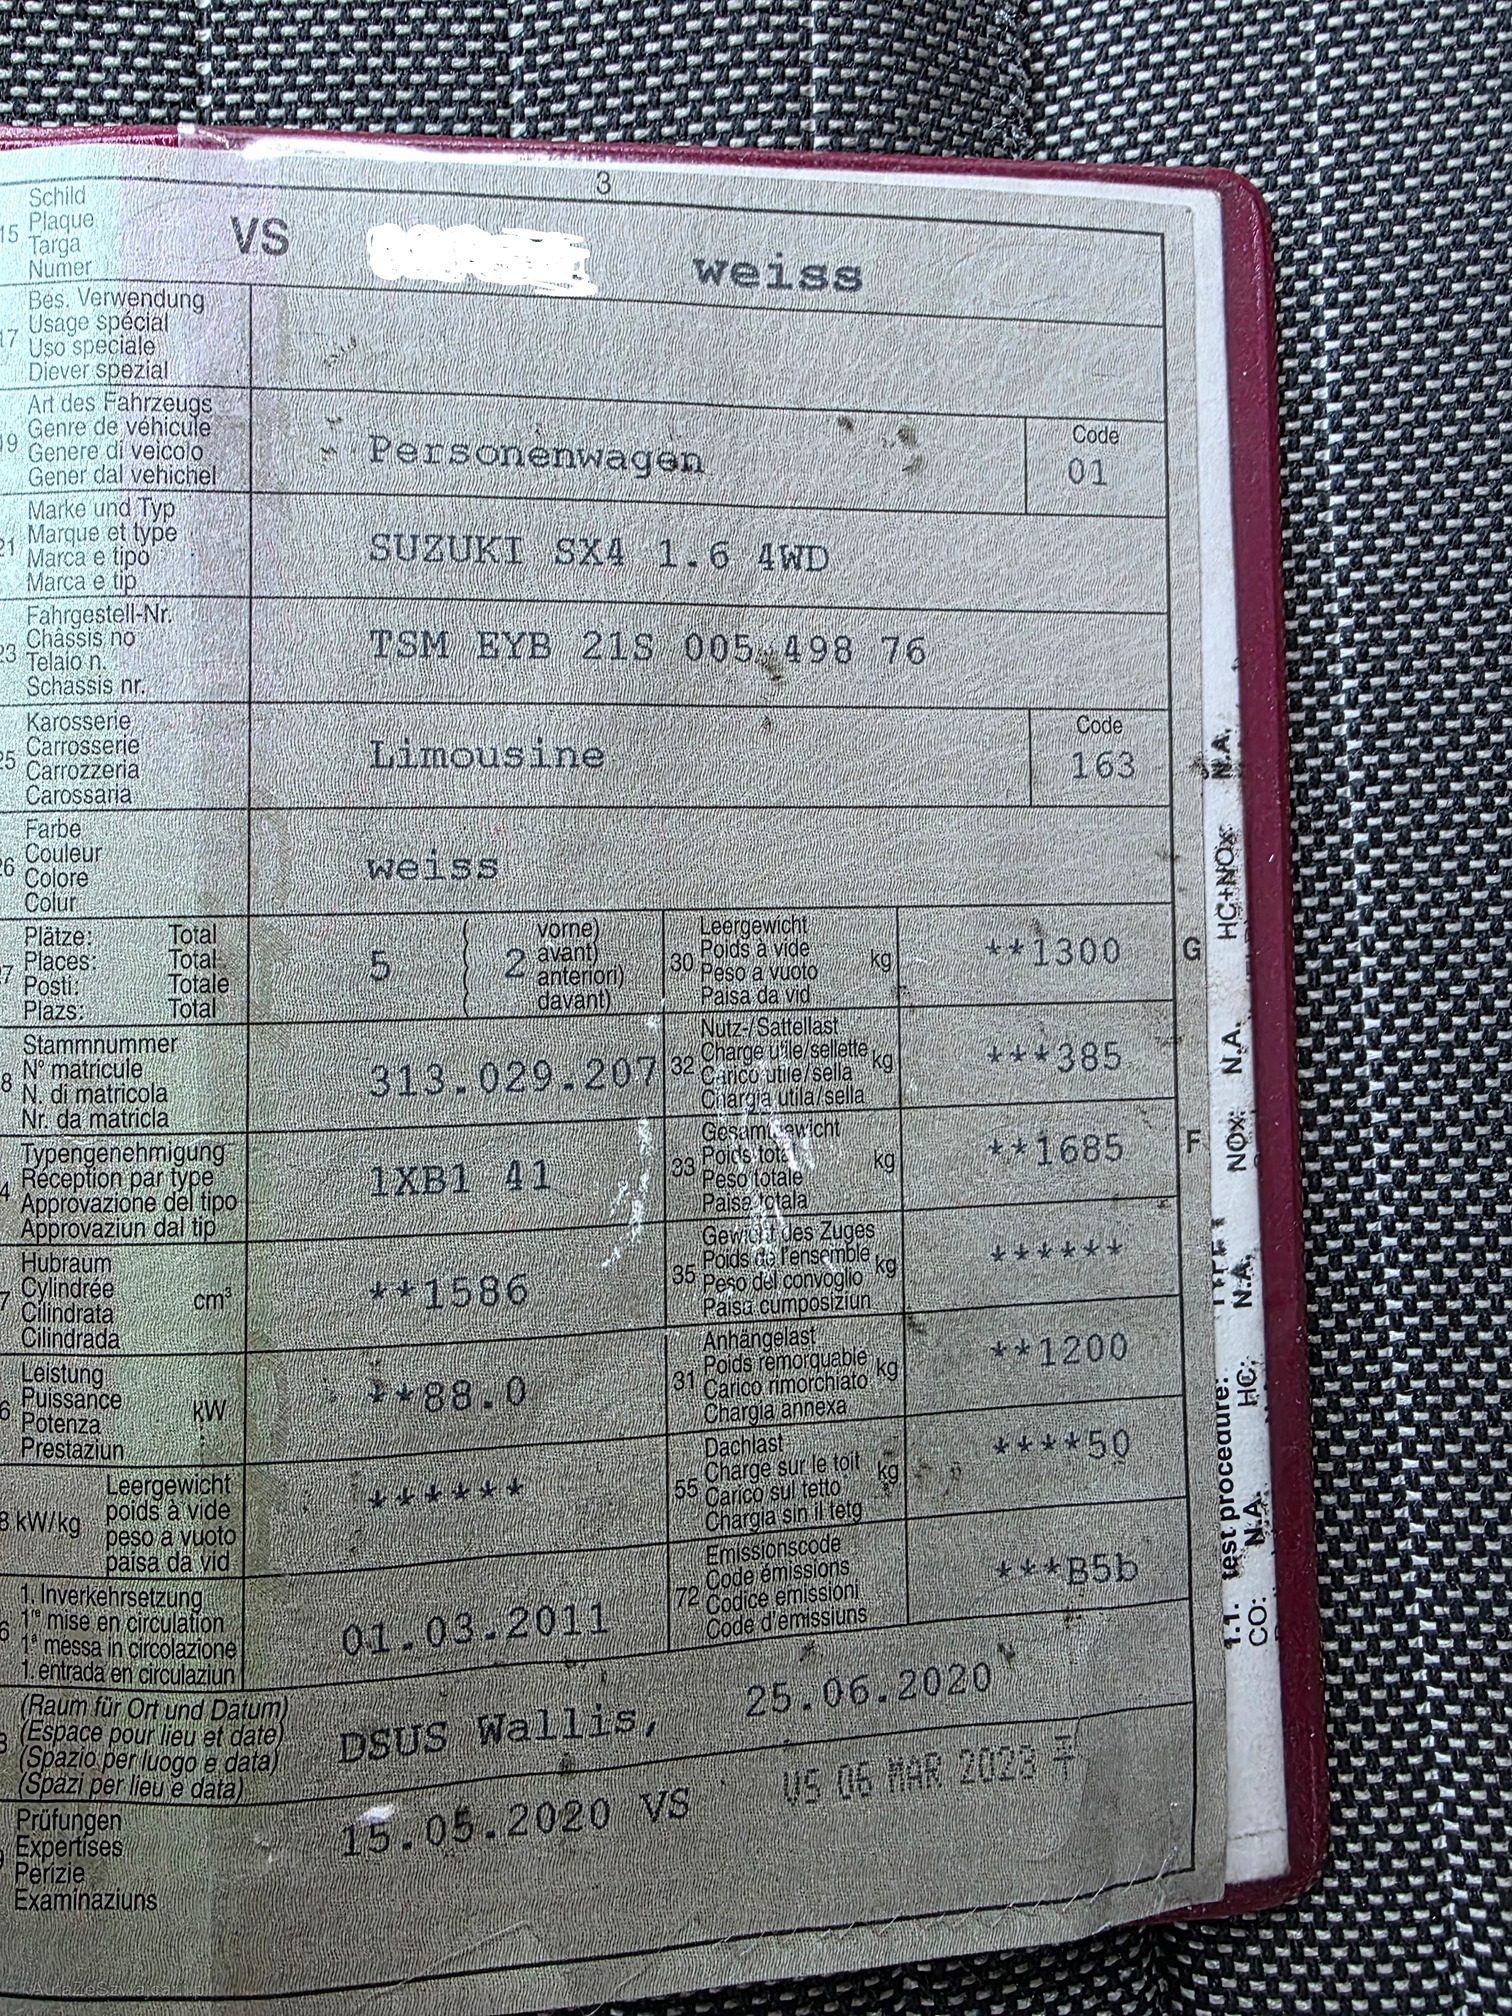 3
15 Schild
Plaque
Targa
Numer
VS weiss
17 Bes. Verwendung
Usage spécial
Uso speciale
Diever spezial
19 Art des Fahrzeugs
Genre de véhicule
Genere di veicolo
Gener dal vehichel
Personenwagen
Code
01
21 Marke und Typ
Marque et type
Marca e tipo
Marca e tip
SUZUKI SX4 1.6 4WD
23 Fahrgestell-Nr.
Châssis no
Telaio n.
Schassis nr.
TSM EYB 21S 005 498 76
25 Karosserie
Carrosserie
Carrozzeria
Carossaria
Limousine
Code
163
26 Farbe
Couleur
Colore
Colur
weiss
7 Plätze: Total
Places: Total
Posti: Totale
Plazs: Total
5 ( 2 vorne)
avant)
anteriori)
davant)
30 Leergewicht
Poids à vide kg
Peso a vuoto
Paisa da vid
**1300
G
8 Stammnummer
N° matricule
N. di matricola
Nr. da matricla
313.029.207
32 Nutz-/Sattellast
Charge utile/sellette kg
Carico utile/sella
Chargia utila/sella
***385
4 Typengenehmigung
Réception par type
Approvazione del tipo
Approvaziun dal tip
1XB1 41
33 Gesamtgewicht
Poids total kg
Peso totale
Paisa totala
**1685
F
7 Hubraum
Cylindrée cm³
Cilindrata
Cilindrada
**1586
35 Gewicht des Zuges
Poids de l'ensemble kg
Peso del convoglio
Paisa cumposiziun
******
6 Leistung
Puissance kW
Potenza
Prestaziun
**88.0
31 Anhängelast
Poids remorquable kg
Carico rimorchiato
Chargia annexa
**1200
8 kW/kg Leergewicht
poids à vide
peso a vuoto
paisa da vid
******
55 Dachlast
Charge sur le toit kg
Carico sul tetto
Chargia sin il tetg
****50
6 1. Inverkehrsetzung
1re mise en circulation
1a messa in circolazione
1. entrada en circulaziun
01.03.2011
72 Emissionscode
Code émissions
Codice emissioni
Code d'émissiuns
***B5b
(Raum für Ort und Datum)
(Espace pour lieu et date)
(Spazio per luogo e data)
(Spazi per lieu e data)
DSUS Wallis, 25.06.2020
Prüfungen
Expertises
Perizie
Examinaziuns
15.05.2020 VS
VS 06 MAR 2023
1.1. test procedure:
CO: N.A. HC: N.A. NOx: N.A. HC+NOx: N.A.